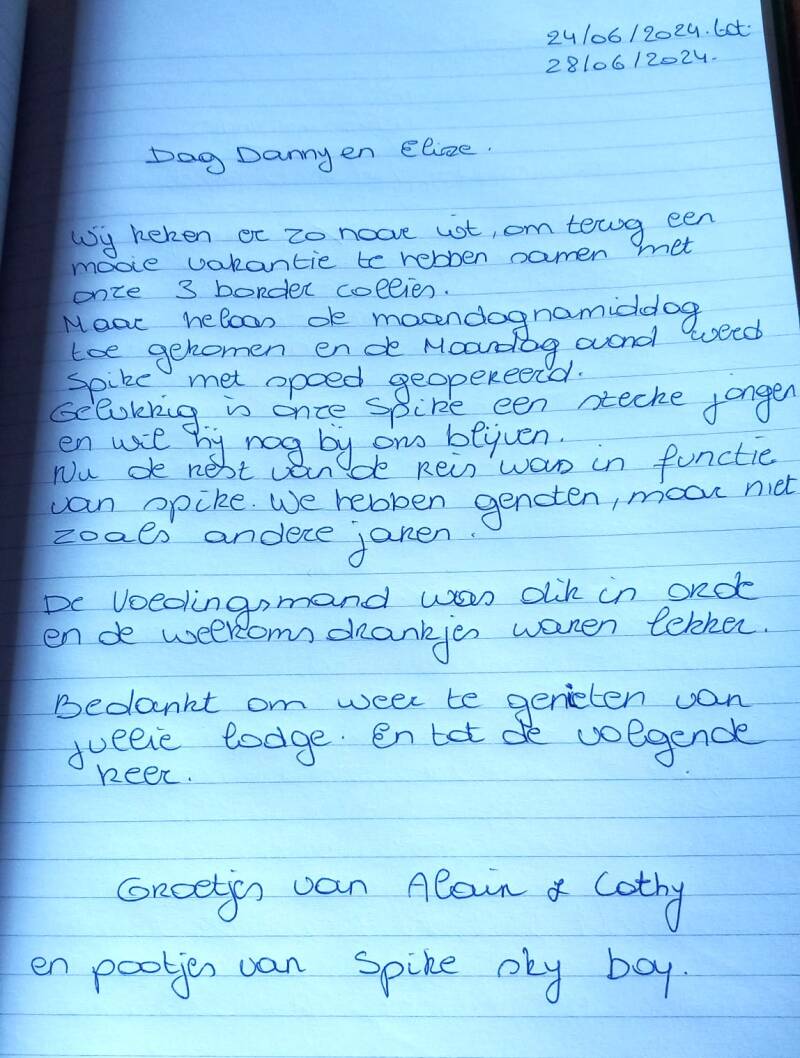 24/06/2024. tot
28/06/2024.
Dag Danny en Elize.
Wij keken er zo naar uit, om terug een
mooie vakantie te hebben samen met
onze 3 border collies.
Maar helaas de maandagnamiddag
toe gekomen en de Maandag avond werd
Spike met spoed geopereerd.
Gelukkig is onze Spike een sterke jongen
en wil hij nog bij ons blijven.
Nu de rest van de reis was in functie
van spike. We hebben genoten, maar niet
zoals andere jaren.
De Voedingsmand was dik in orde
en de welkomsdrankjes waren lekker.
Bedankt om weer te genieten van
jullie lodge. En tot de volgende
keer.
Groetjes van Alain & Cathy
en pootjes van Spike sky boy.